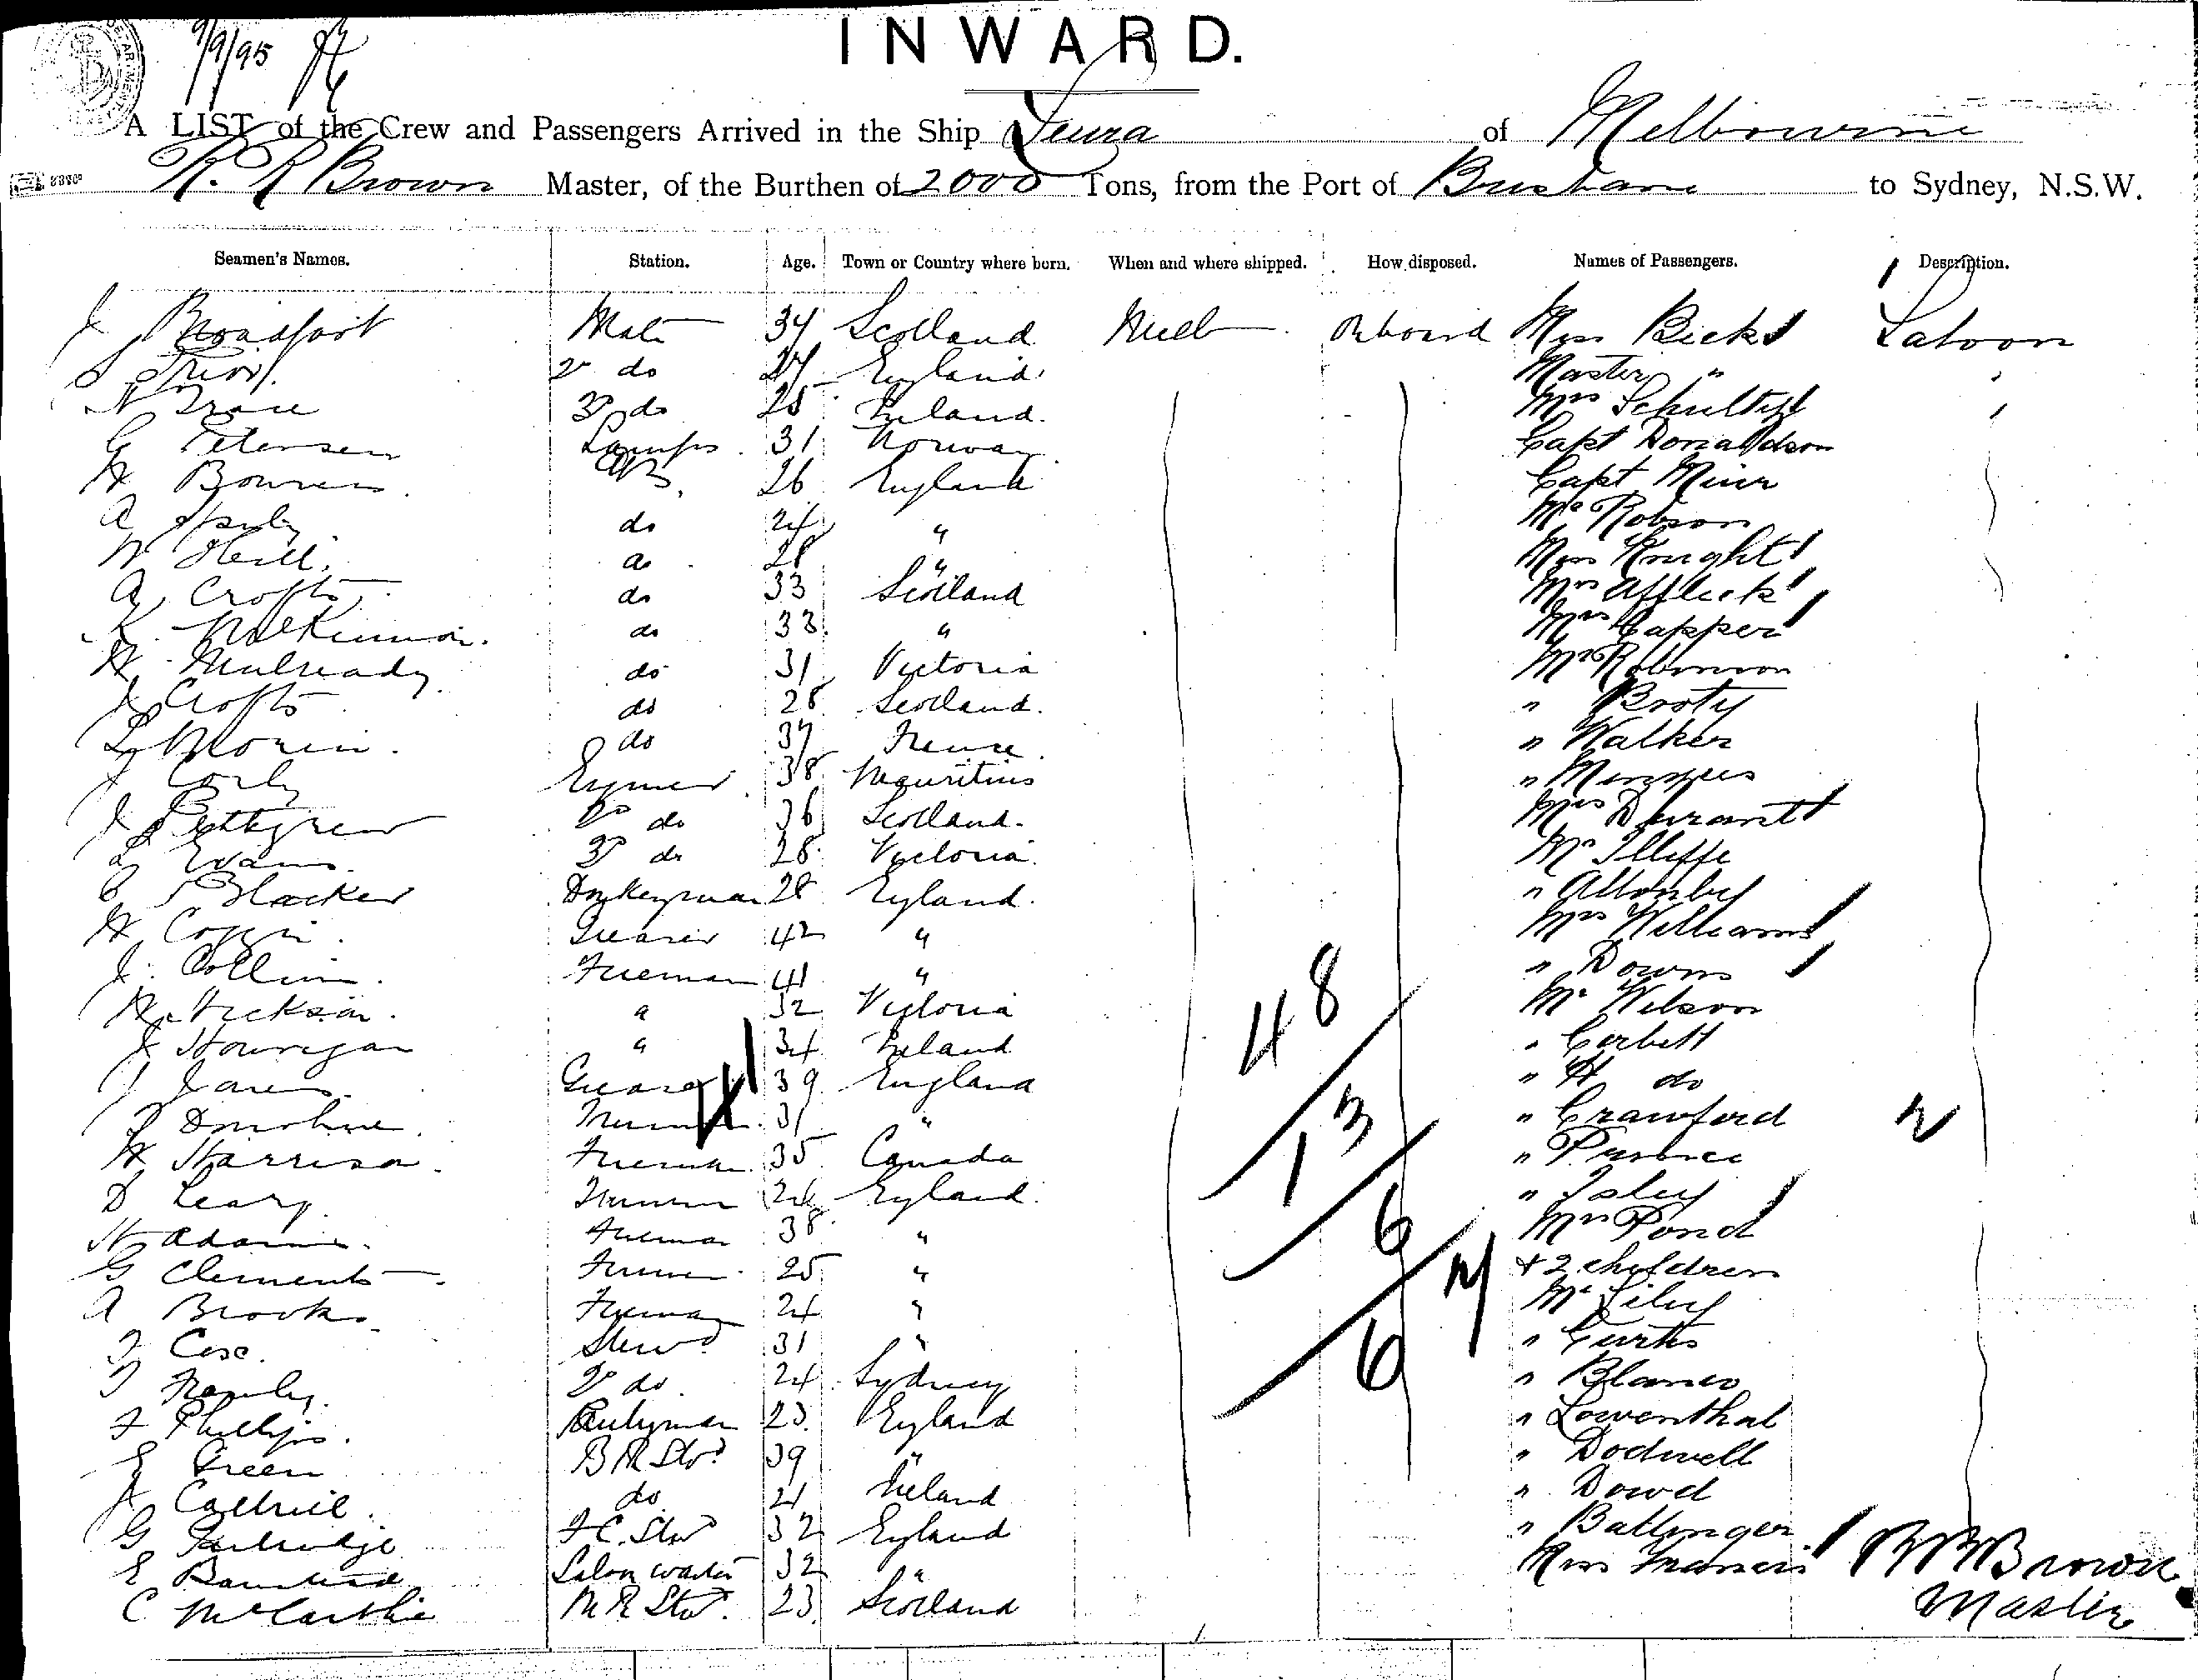 INWARD.
9/9/95
A LIST of the Crew and Passengers Arrived in the Ship Leura of Melbourne
R. R Brown Master, of the Burthen of 2000 Tons, from the Port of Brisbane to Sydney, N.S.W.
Seamen's Names. Station. Age. Town or Country where born. When and where shipped. How disposed. Names of Passengers. Description.
J Broadfoot Mate 34 Scotland Melb Onboard Miss Bicks Saloon
S 2d do 27 England Master "
N Grace 3d do 25 Ireland. Mrs Schultz
G Petersen Lamps 31 Norway Capt Donaldson
H Bowren AB. 26 England Capt Muir
A Apsley do 24 " Mr Robson
W Hill. do 28 " Miss Knight
A Crofts do 33 Scotland Mrs Affleck
K McKinnon. do 33 " Mrs Capper
H Mulready do 31 Victoria Mr Robinson
J Crofts do 28 Scotland. " Booty
L Morin. do 37 France. " Walker
J Corly 38 Mauritius " Menzies
J Pettigrew 2d do 36 Scotland. Mrs Durant
L Evans. 3d do 28 Victoria. Mr Illiffe
C J Blacker Donkeyman 28 England. " Allonby
H Coggin. Greaser 42 " Mrs Williams
J. Collins. Fireman 41 " " Downs
H. Hickson. " 32 Victoria Mr Wilson
J Hourigan " 34 Ireland " Corbett
J James. Greaser 39 England " H do
J Donohue. Trimmer. 31 " " Crawford
H Harrison. Fireman. 35 Canada "
D Leary. Trimmer 24 England. " Isley
W Adams. Fireman 38 " Mrs Pond
G Clements. Trimmer 25 " + 2 children
A Brooks. Fireman 24 " Mr Lily
J Case. Stewd 31 " " Curtis
T 2d do. 24 Sydney " Blanco
F Phillips. Pantryman 23. England " Lowenthal
E Green B R Stwd 39 " " Dodwell
J Cottrill. do 21 Ireland " Dowd
G Partridge F.C. Stwd 32 England " Ballinger
E Saloon waiter 32 " Miss Francis
C McCarthie M R Stwd. 23 Scotland
41
48
13
6
7
6
2
R R Brown
Master